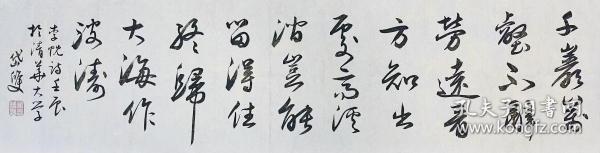 千岩万
壑不辞
劳远看
方知出
处高溪
涧岂能
留得住
终归
大海作
波涛
李忱诗壬辰
于清华大学
岱雙
孔夫子旧书网